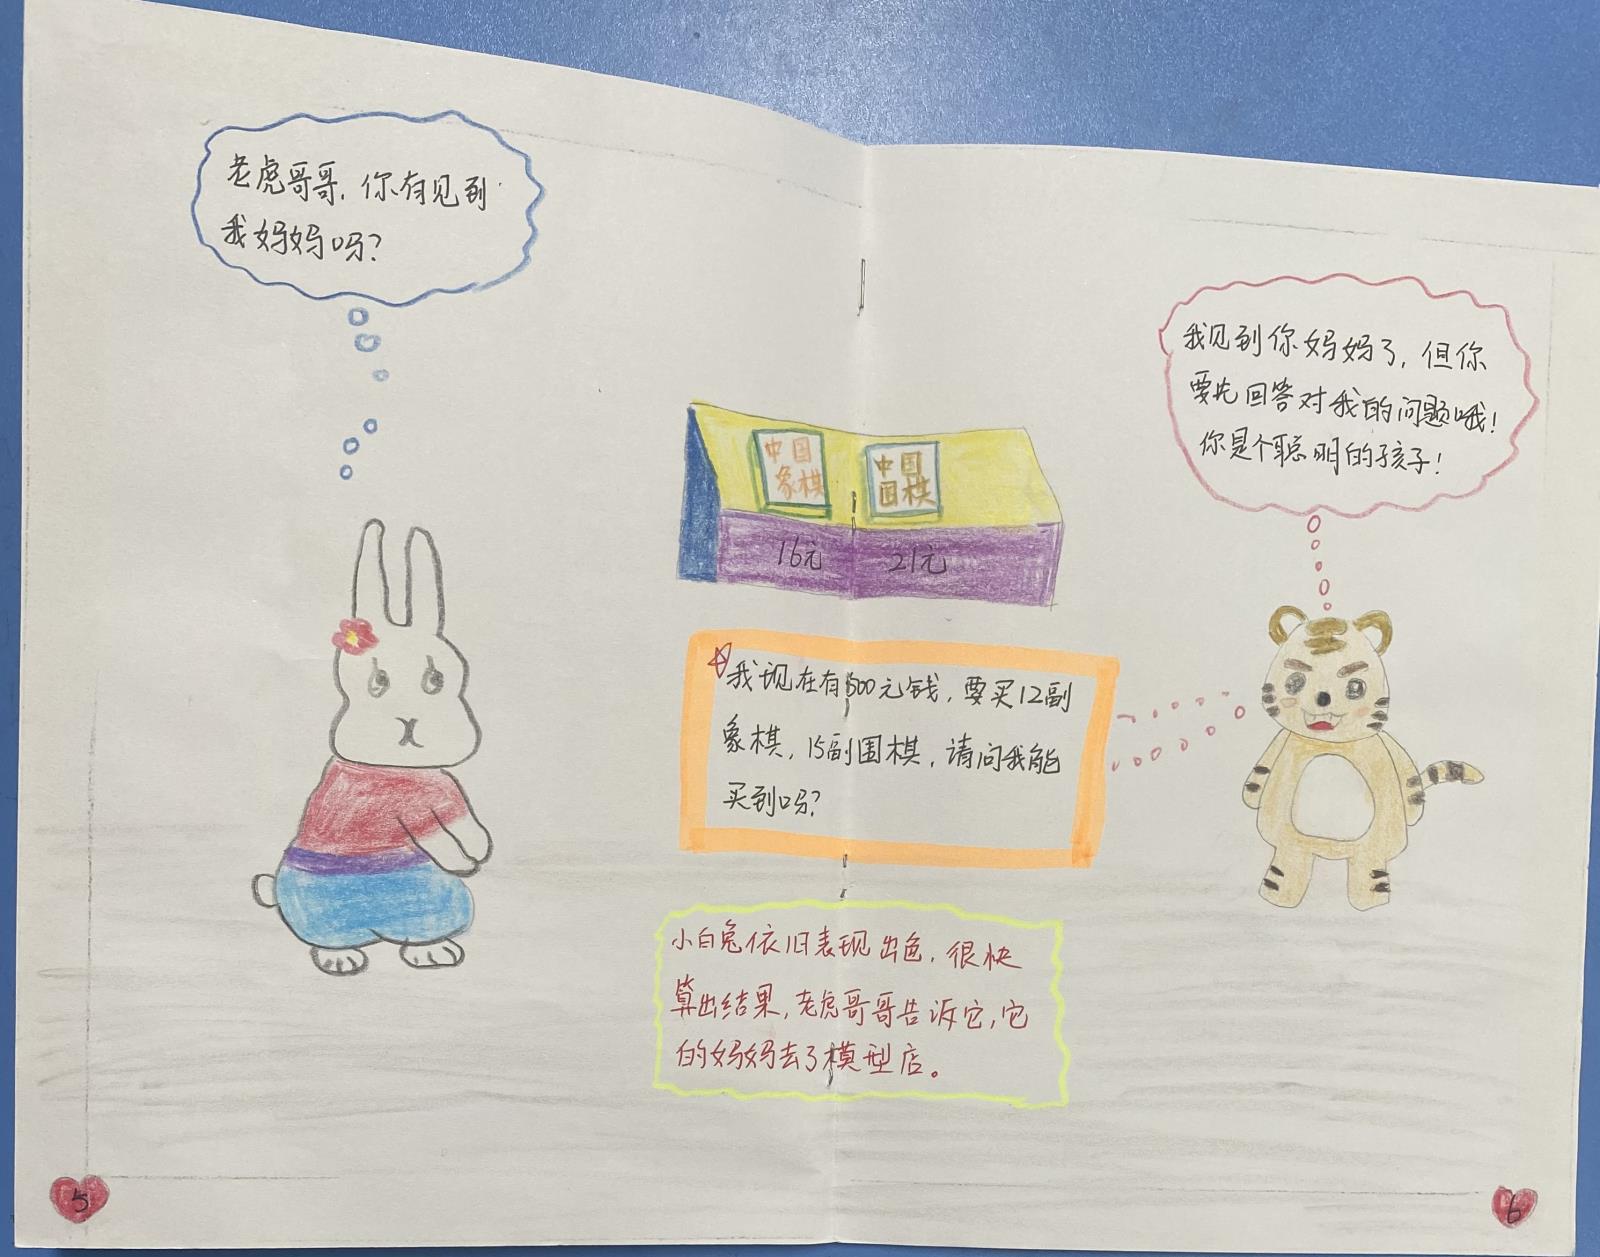 老虎哥哥，你有见到
我妈妈吗？
我见到你妈妈了，但你
要先回答对我的问题哦！
你是个聪明的孩子！
中国
象棋
中国
围棋
16元
21元
我现在有500元钱，要买12副
象棋，15副围棋，请问我能
买到吗？
小白兔依旧表现出色，很快
算出结果，老虎哥哥告诉它，它
的妈妈去了模型店。
5
6